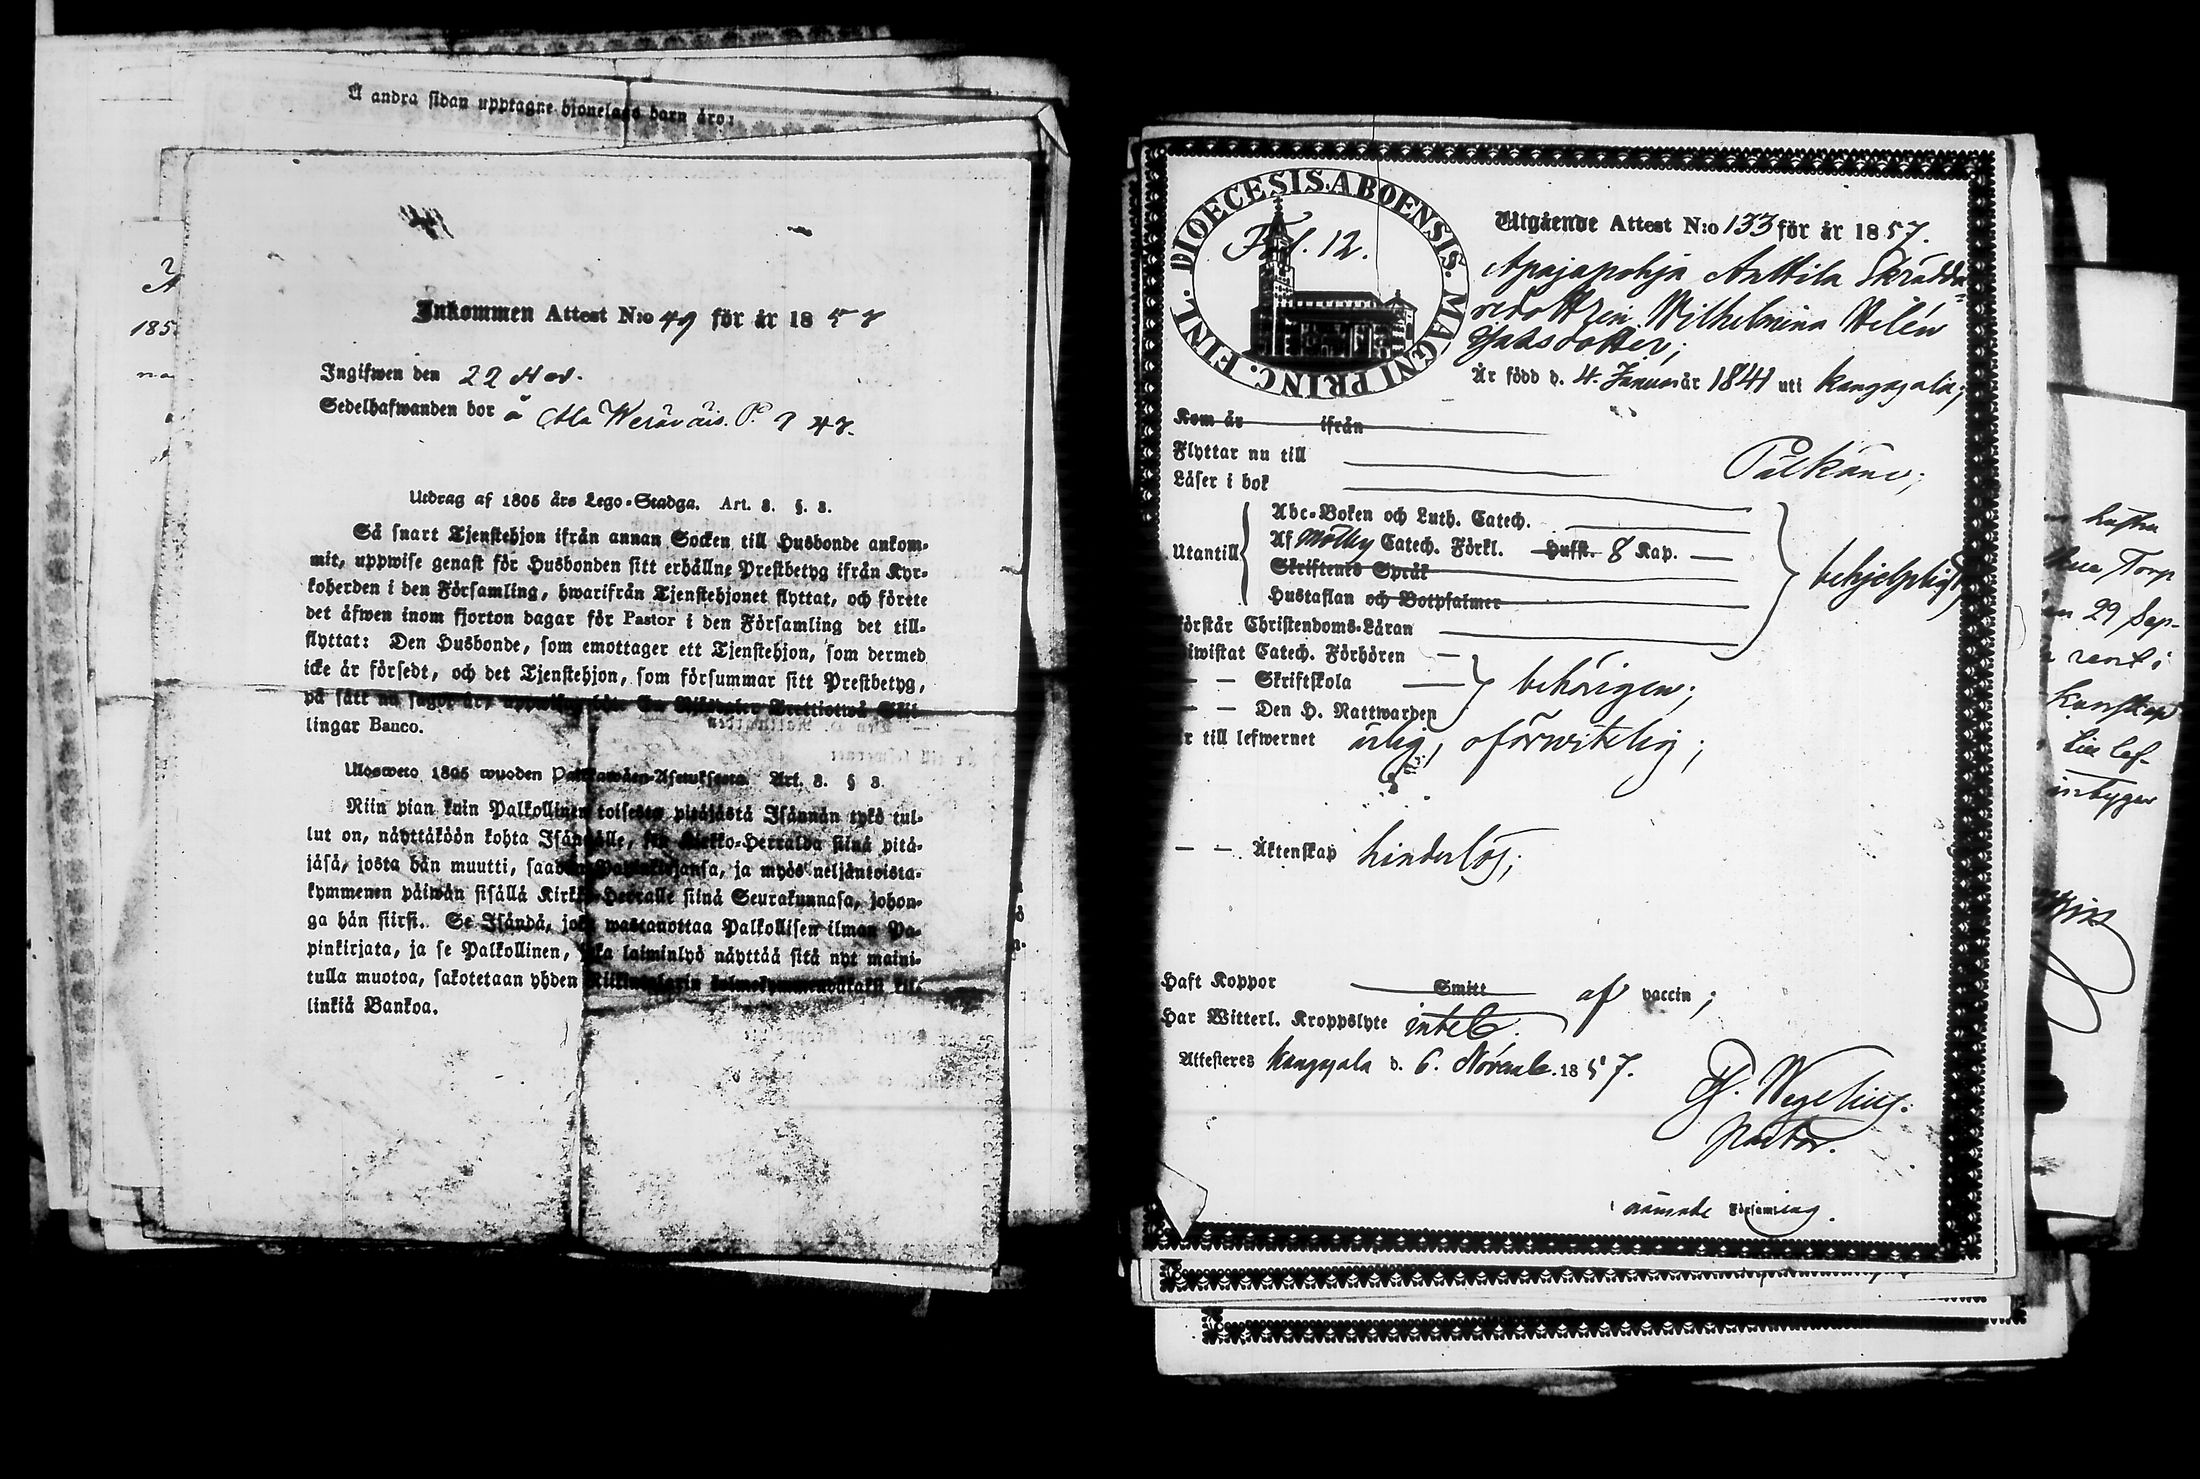 Å andra sidan upptagne hjonelags barn äro:
185
Inkommen Attest N:o 49 för år 1857
Ingifwen den 22 Nov.
Sedelhafwanden bor å Ala Weräväis. P. 947.
Utdrag af 1805 års Lego-Stadga. Art. 3. §. 3.
Så snart Tjenstehjon ifrån annan Socken till Husbonde ankom-
mit, uppwise genast för Husbonden sitt erhållne Prestbetyg ifrån Kyr-
koherden i den Församling, hwarifrån Tjenstehjonet flyttat, och förete
det äfwen inom fjorton dagar för Pastor i den Församling det till-
flyttat: Den Husbonde, som emottager ett Tjenstehjon, som dermed
icke är försedt, och det Tjenstehjon, som försummar sitt Prestbetyg,
på sätt nu sagdt är, uppwisa, böte En Riksdaler Trettiotwå Skil-
lingar Banco.
Ulosweto 1805 wuoden Palkkawäen-Asetuksesta. Art. 3. § 3.
Niin pian kuin Palkollinen toisesta pitäjästä Isännän tykö tul-
lut on, näyttäköön kohta Isännälle, sen Kirkko-Herralda siinä pitä-
jäsä, josta hän muutti, saadun Papinkirjansa, ja myös neljäntoista-
kymmenen päiwän sisällä Kirkko-Herralle siinä Seurakunnasa, johon-
ga hän siirsi. Se Isändä, joka wastanottaa Palkollisen ilman Pa-
pinkirjata, ja se Palkollinen, joka laiminlyö näyttää sitä nyt maini-
tulla muotoa, sakotetaan yhden Riikintalarin kolmekymmendäkaksi kil-
linkiä Bankoa.
DIOECESIS. ABOENSIS. MAGNI PRINC. FINL.
Fol. 12.
Utgående Attest N:o 133 för år 1857.
Apajapohja Anttila Skrädda
redottren Wilhelmina Wilén
Jakobsdotter;
Är född d. 4. Januar år 1841 uti Kangasala;
Kom år ifrån
Flyttar nu till Pälkäne;
Läser i bok
Abc-Boken och Luth. Catech.
Utantill Af Möthy Catech. Förkl. Hufst. 8 Kap.
Skriftenes Språk
behjelpligt;
Hustaflan och Botpsalmer
örstår Christendoms-Läran
iwistat Catech. Förhören
— — Skriftskola behörigen;
— — Den H. Nattwarden
r till lefwernet ärlig, oförwitelig;
— — Äktenskap hinderlös;
Haft Koppor Smitt af vaccin;
Har Witterl. Kroppslyte intet.
Attesteres Kangasala d. 6. Novemb. 1857.
Wegelius.
Pastor.
i nämnde Församling.
Torp
29 Sep-
Kunskap
lef-